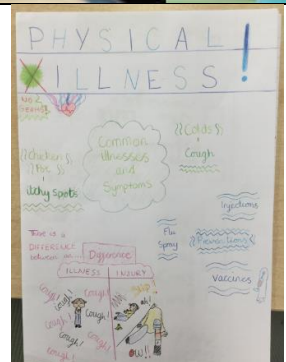 PHYSICAL !
ILLNESS
No 2
Germs
Common
Illnesses
and
Symptoms
Colds
Cough
Chicken
Pox
Itchy Spots
Injections
Flu
Spray
Preventions
Vaccines
There is a
DIFFERENCE
between
Difference
ILLNESS
INJURY
Cough!
Cough!
Cough!
Cough!
Cough!
Cough!
Cough!
ah!
OW!!